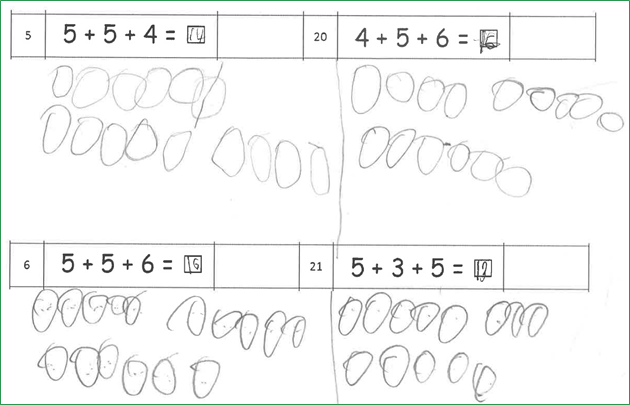 5 5 + 5 + 4 = 14
20 4 + 5 + 6 = 15
6 5 + 5 + 6 = 16
21 5 + 3 + 5 =